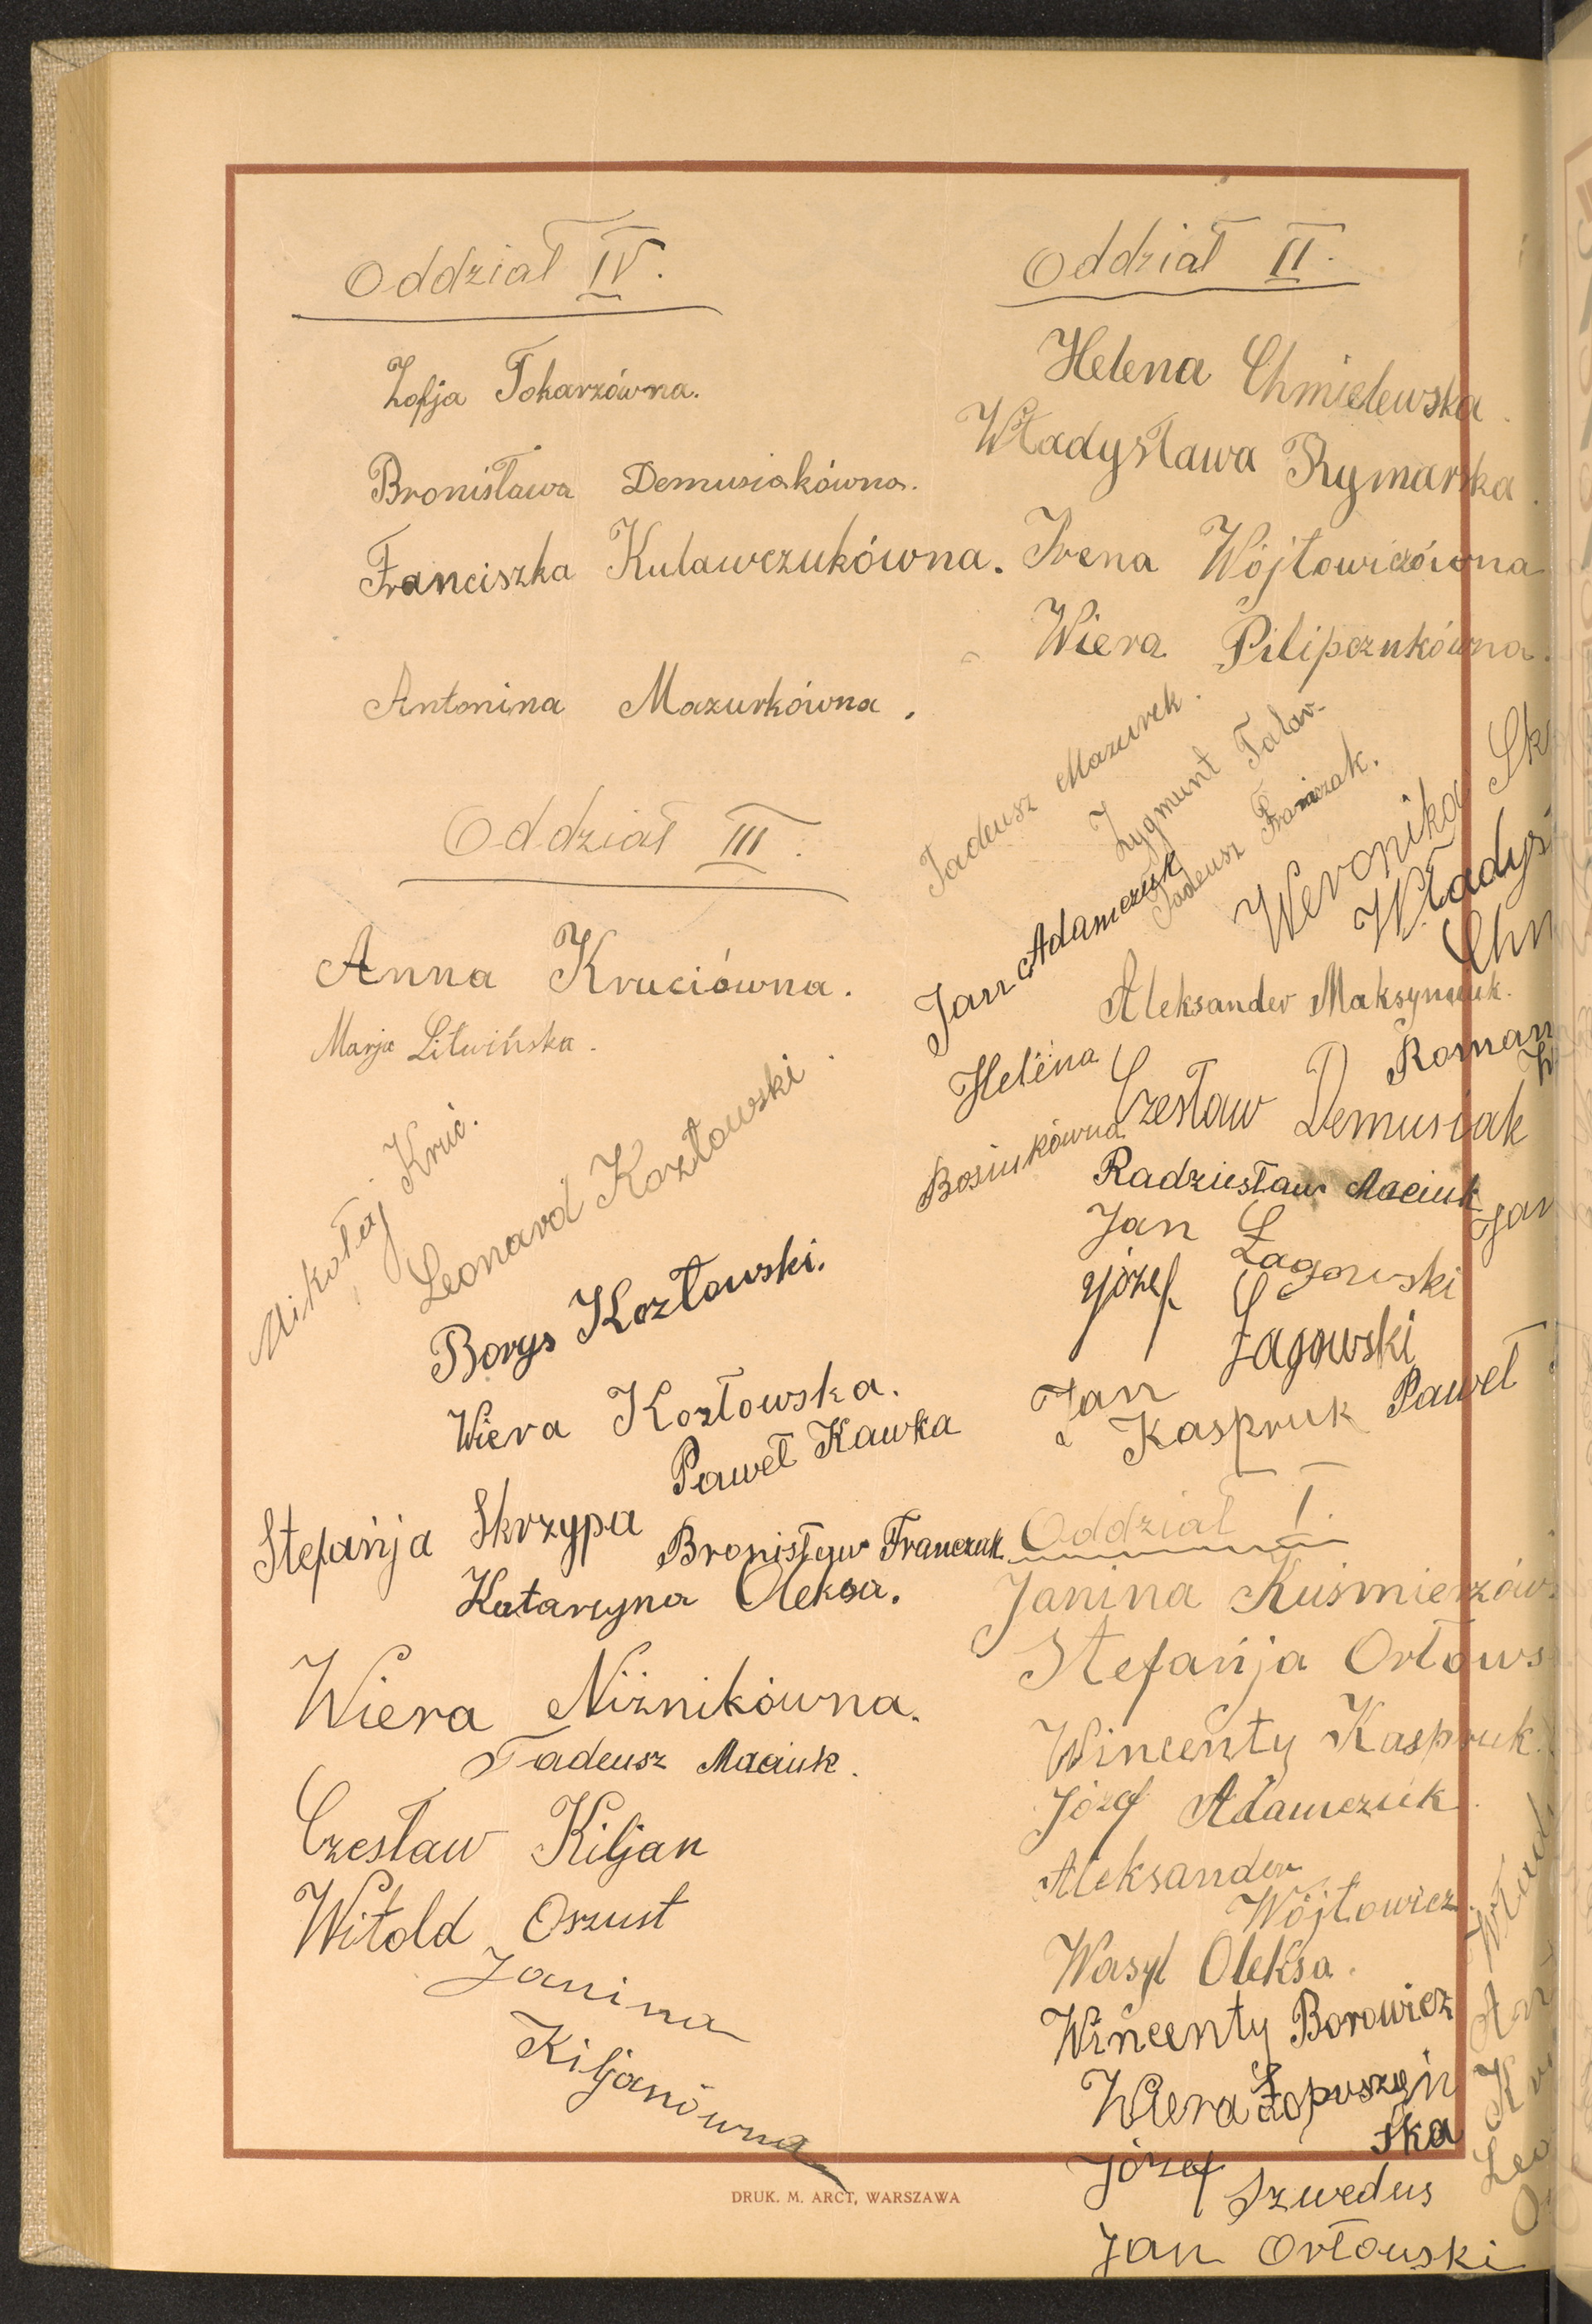 Oddział IV.
Zofja Tokarzówna.
Bronisława Demusiakówna.
Franciszka Kulawczukówna.
Antonina Mazurkówna.
Oddział III.
Anna Kruciówna.
Marja Litwińska.
Mikołaj Kruć.
Leonard Kozłowski
Borys Kozłowski.
Wiera Kozłowska.
Paweł Kawka
Stefańja Skrzypa
Bronisław Franczuk
Katarzyna Oleksa.
Wiera Niżnikówna.
Tadeusz Maciuk.
Czesław Kiljan
Witold Oszust
Janina
Kiljanówna
Oddział II.
Helena Chmielewska.
Władysława Rymarska.
Irena Wójtowiczówna
Wiera Pilipczukówna.
Tadeusz Mazurek.
Zygmunt Talar.
Tadeusz Franczak.
Jan Adamczuk
Weronika Sk
Władys
Chm
Aleksander Maksymiuk.
Roman
Helena
Bosiukówna
Czesław Demusiak
Radziesław Maciuk
Jan
Jan Łagowski
Józef Łagowski
Jan Kaspruk
Paweł
Oddział I.
Janina Kuśmierzów
Stefańja Orłows
Wincenty Kaspruk.
Józef Adamczuk.
Aleksander
Wójtowicz.
Wasyl Oleksa.
Wincenty Borowicz
Wiera Łopuszyń
ska
Józef Szwedus
Jan Orłowski
Wład
DRUK. M. ARCT, WARSZAWA